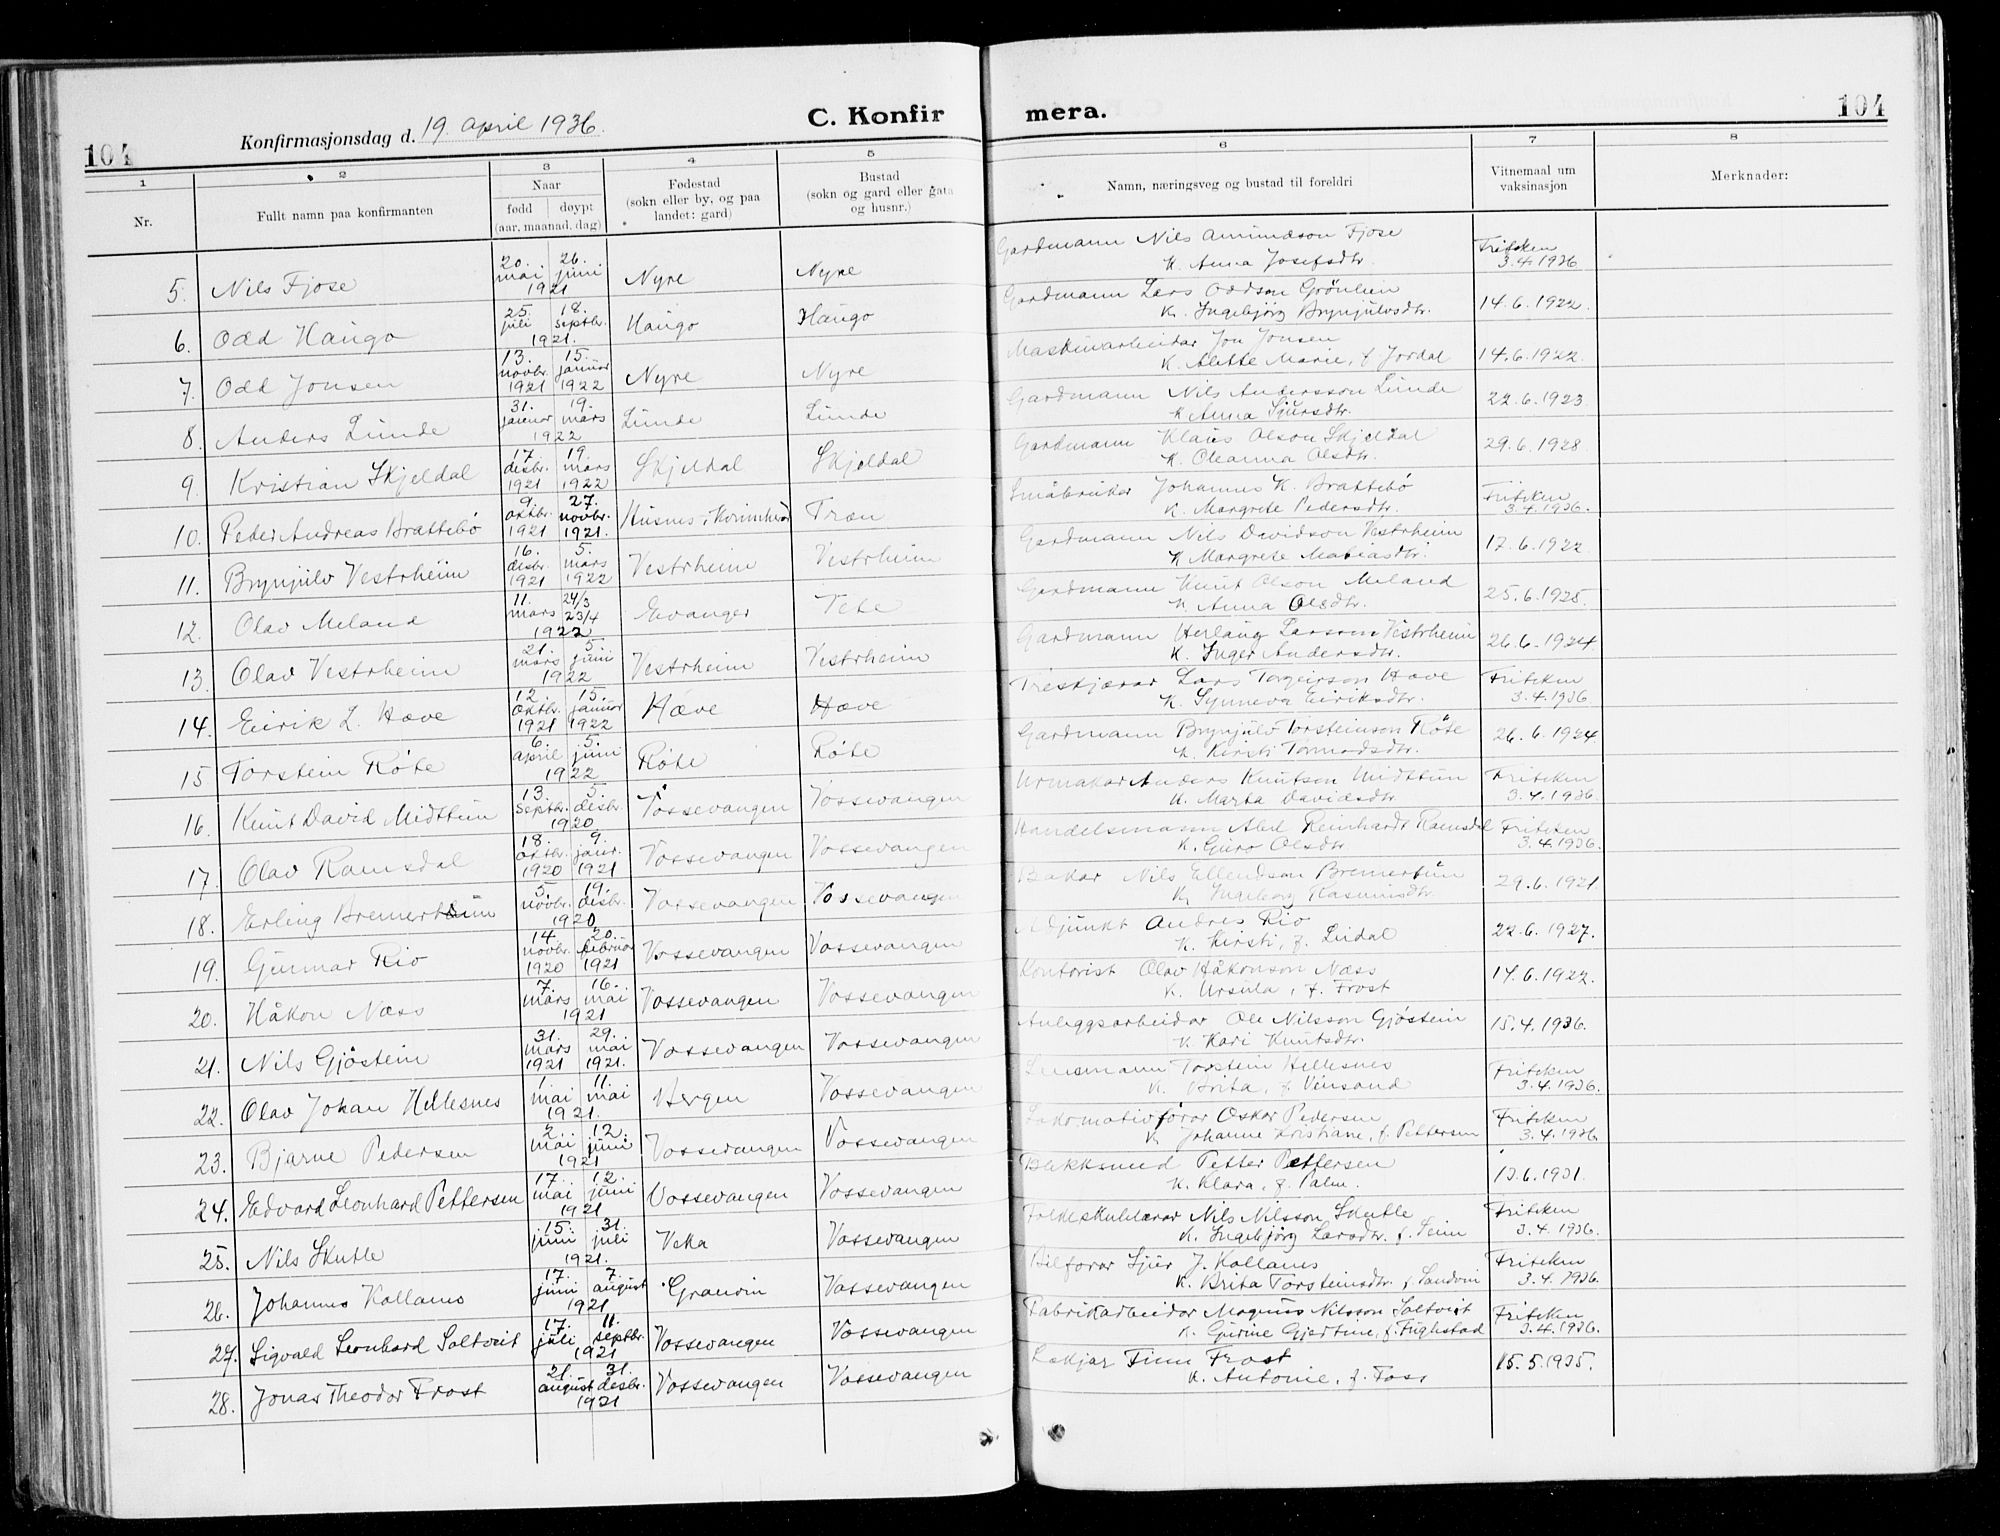 104 Konfirmasjonsdag d. 19. april 1936. C. Konfirmera. 104
1 2 3 4 5 6 7 8
Nr. Fullt namn paa konfirmanten Naar fødd døypt (aar, maanad, dag) Fødestad (sokn eller by, og paa landet: gard) Bustad (sokn og gard eller gata og husnr.) Namn, næringsveg og bustad til foreldri Vitnemaal um vaksinasjon Merknader:
5. Nils Fjose 20. mai 26. juni 1921 Nyre Nyre Gardmann Nils Amundson Fjose K. Anna Josefsdtr. Friteken 3.4.1936
6. Odd Haugo 25. juli 18. septbr. 1921. Haugo Haugo Gardmann Lars Oddson Grönlien K. Ingebjörg Brynjulvsdtr. 14.6.1922.
7. Odd Jonsen 13. novbr. 1921 15. januar 1922 Nyre Nyre Maskinarbeidar Jon Jonsen K. Alette Marie, f. Jordal 14.6.1922
8. Anders Lunde 31. januar 19. mars 1922 Lunde Lunde Gardmann Nils Andersson Lunde K. Anna Sjursdtr. 22.6.1923
9. Kristian Skjeldal 17. desbr. 1921 19. mars 1922 Skjeldal Skjeldal Gardmann Klaus Olson Skjeldal K. Oleanna Olsdtr. 29.6.1928
10. Peder Andreas Brattebö 9. oktbr. 1921 27. novbr. 1921. Husnes i Kvinnherad Træn Småbrukar Johannes K. Brattebö K. Margrete Pedersdtr. Friteken 3.4.1936.
11. Brynjulv Vestrheim 16. desbr. 1921 5. mars 1922 Vestrheim Vestrheim Gardmann Nils Davidson Vestrheim K. Margrete Matiasdtr. 17.6.1922
12. Olav Meland 11. mars 24/3 23/4 1922 Evanger Tete Gardmann Knut Olson Meland K. Anna Olsdtr. 25.6.1925.
13. Olav Vestrheim 21. mars 5. juni 1922 Vestrheim Vestrheim Gardmann Herlaug Larsson Vestrheim K. Inger Andersdtr. 26.6.1924
14. Eirik L. Hæve 12. oktbr. 1921 15. januar 1922 Hæve Hæve Treskjærar Lars Torgeirson Hæve K. Synneva Eiriksdtr. Friteken 3.4.1936
15 Torstein Röte 6. april 5. juni 1922 Röte Röte Gardmann Brynjulv Torsteinson Röte K. Kirsti Tormodsdtr. 26.6.1924.
16. Knut David Midttun 13. septbr. 5. desbr. 1920 Vossevangen Vossevangen Urmakar Anders Knutson Midttun K. Marta Davidsdtr. Friteken 3.4.1936
17. Olav Ramsdal 18. oktbr. 1920 9. janr. 1921 Vossevangen Vossevangen Handelsmann Abel Reinhardt Ramsdal K. Guro Olsdtr. Friteken 3.4.1936.
18. Erling Bremertun 5. novbr. 19. desbr. 1920 Vossevangen Vossevangen Bakar Nils Ellendson Bremertun K. Ingeborg Rasmusdtr. 29.6.1921
19. Gunnar Rio 14 novbr. 1920 20. februar 1921 Vossevangen Vossevangen Adjunkt Andres Rio K. Kirsti, f. Lidal 22.6.1927.
20. Håkon Næss 7. mars 16. mai 1921 Vossevangen Vossevangen Kontorist Olav Håkonson Næss K. Ursula, f. Frost 17.6.1922.
21. Nils Gjöstein 31. mars 1921 29. mai 1921. Vossevangen Vossevangen Anleggsarbeidar Ole Nilsson Gjöstein K. Kari Knutsdtr. 15.4.1936.
22. Olav Johan Hellesnes 1. mai 11. mai 1921. Bergen Vossevangen Lensmann Torstein Hellesnes K. Brita, f. Vinsand Friteken 3.4.1936.
23. Bjarne Pedersen 2. mai 12. juni 1921 Vossevangen Vossevangen Lokomotivförar Oskar Pedersen K. Johanne Kristiane, f. Pettersen Friteken 3.4.1936
24. Edvard Leonhard Pettersen 17. mai 12. juni 1921 Vossevangen Vossevangen Blekksmed Petter Pettersen K. Klara, f. Palm. 13.6.1931.
25. Nils Skutle 15. juni 31. juli 1921. Veka Vossevangen Folkeskulelærar Nils Nilsson Skutle K. Ingebjörg Larsdtr. f. Seim Friteken 3.4.1936.
26. Johannes Kollanes 17. juni 7. august 1921 Granvin Vossevangen Bilförar Sjur J. Kollanes K. Brita Torsteinsdtr. f. Sandvin Friteken 3.4.1936.
27. Sigvald Leonhard Soltveit 17. juli 11. septbr. 1921 Vossevangen Vossevangen Fabrikarbeidar Magnus Nilsson Soltveit K. Gurine Gjertine, f. Fuglestad Friteken 3.4.1936.
28. Jonas Theodor Frost 21. august 31. desbr. 1921 Vossevangen Vossevangen Finn Frost K. Antonie, f. Foss 15.5.1935.